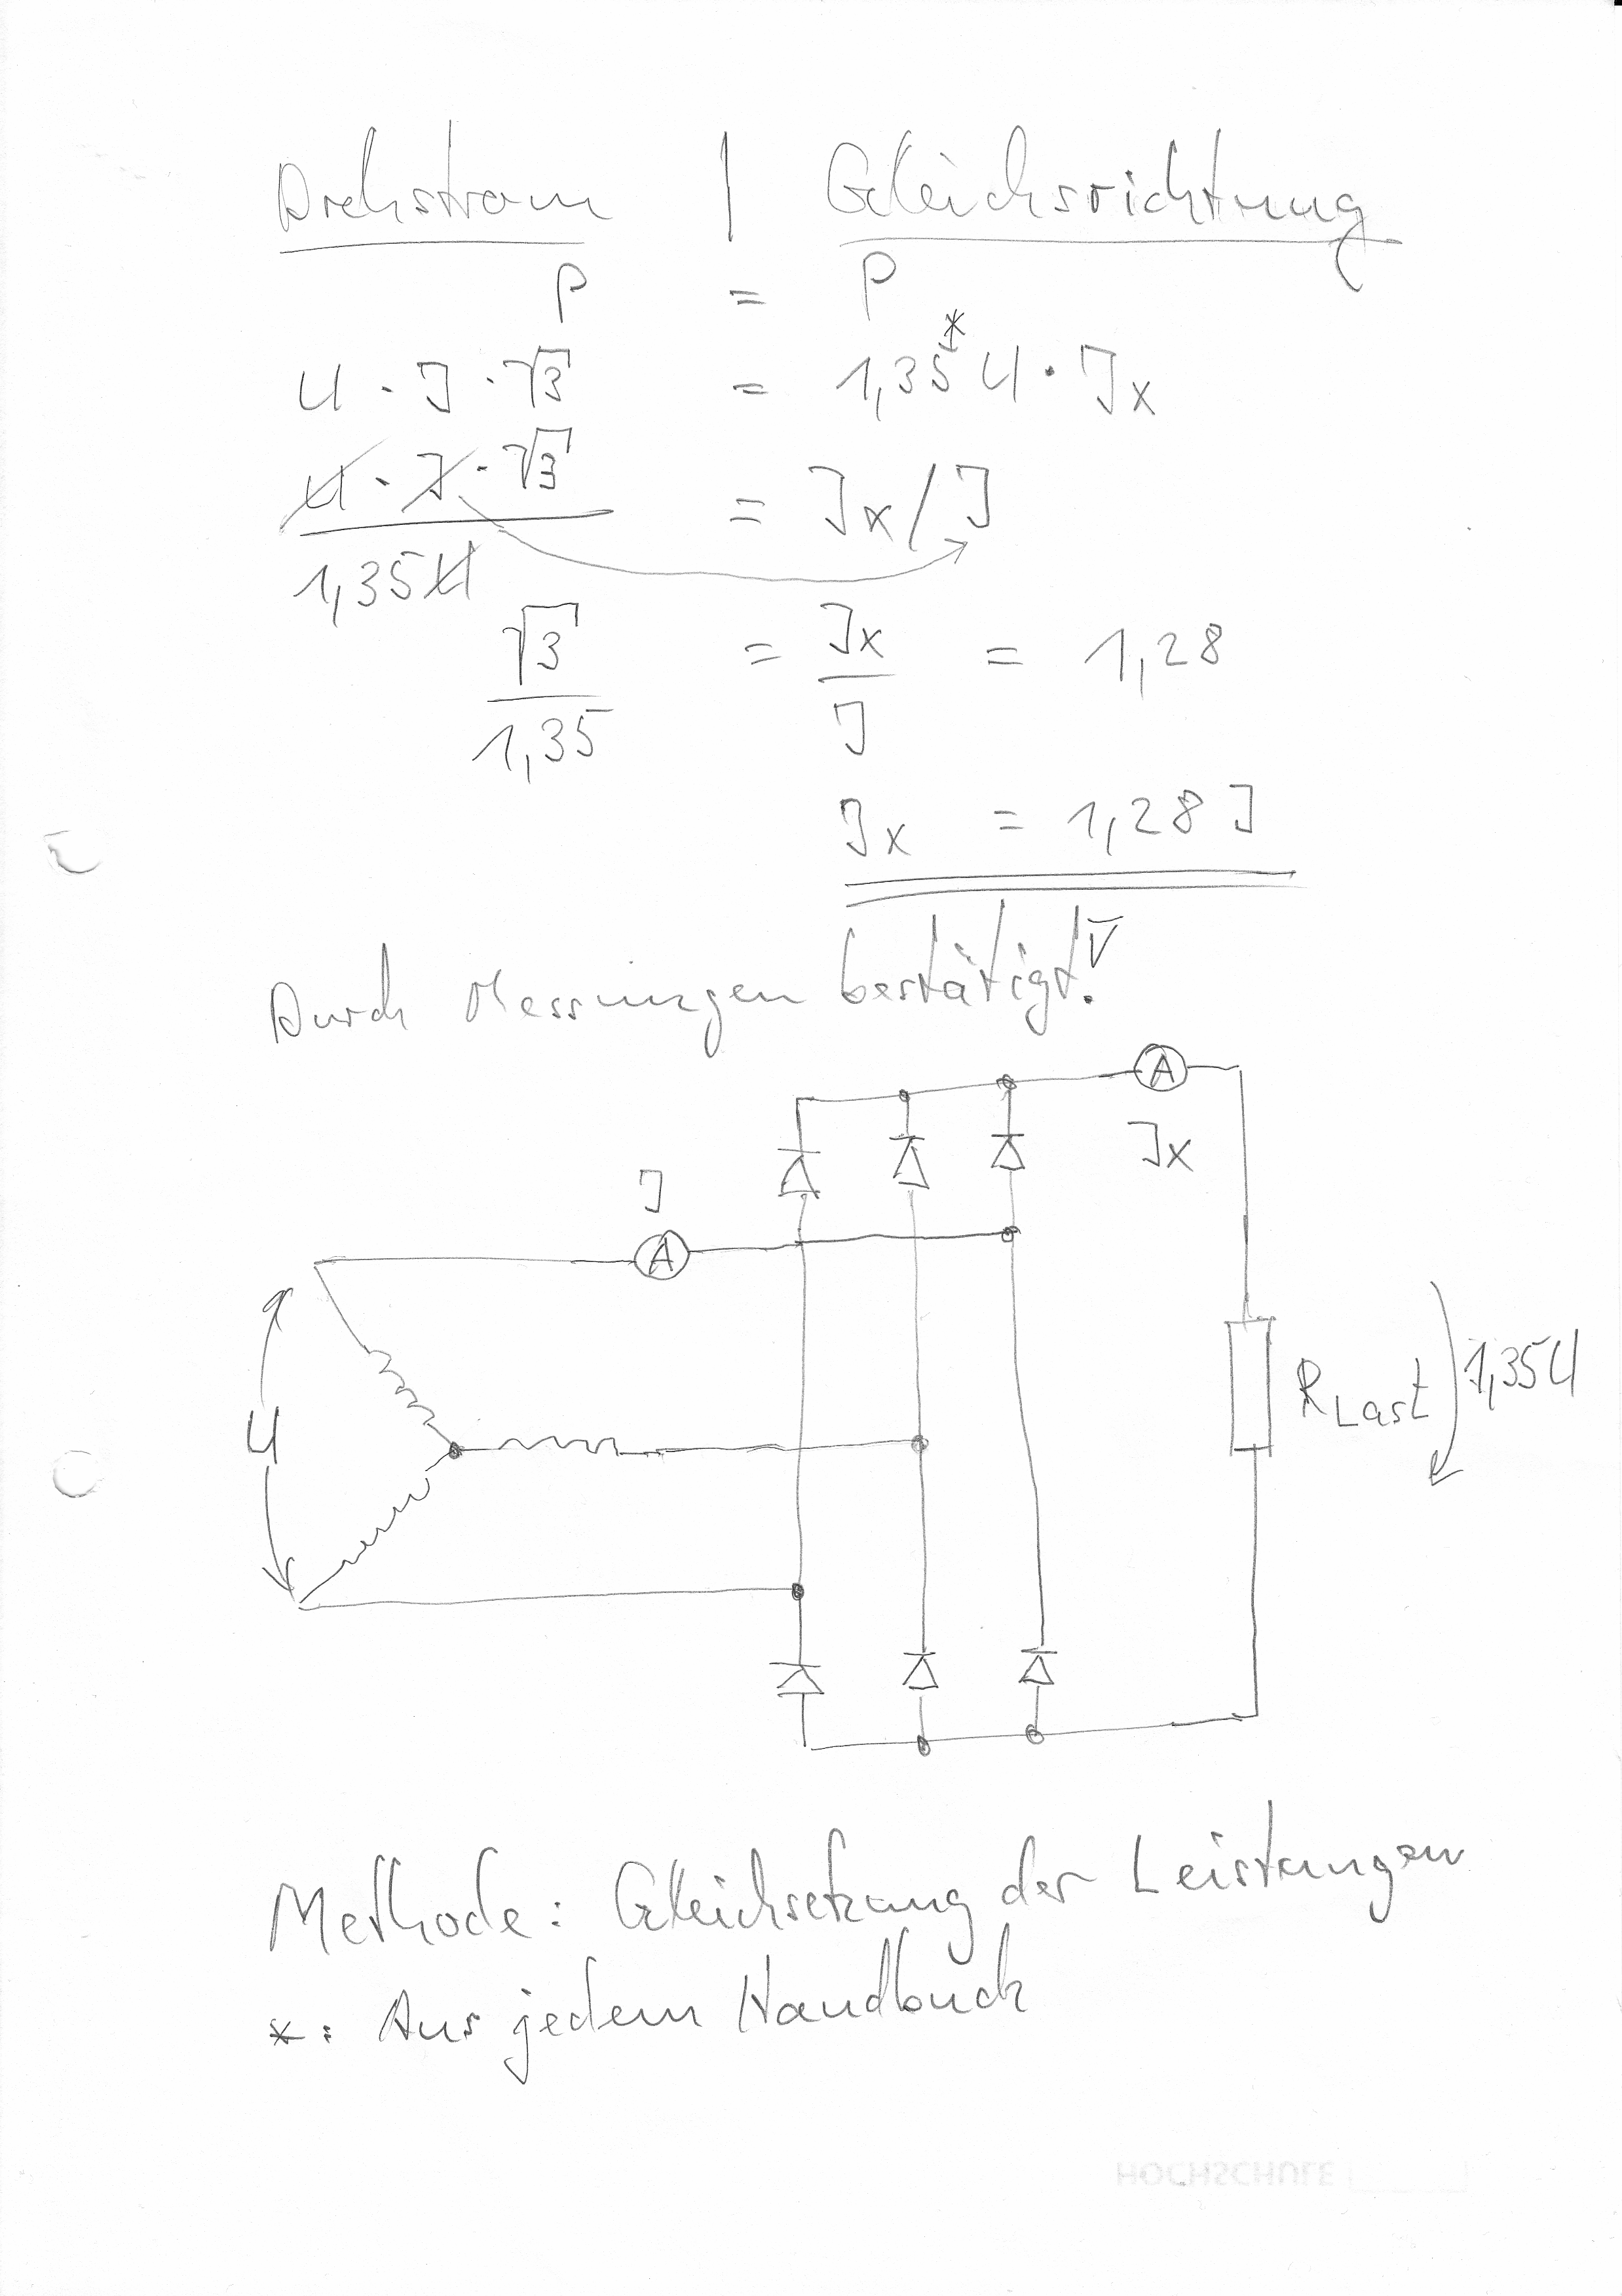 Drehstrom | Gleichsrichtung
P = P
U · I · √3 = 1,35* U · Ix
U · I · √3 / 1,35 U = Ix / I
√3 / 1,35 = Ix / I = 1,28
Ix = 1,28 I
Durch Messungen bestätigt.
A
Ix
I
A
U
RLast
1,35U
Methode: Gleichsetzung der Leistungen
*: Aus jedem Handbuch
HOCHSCHULE